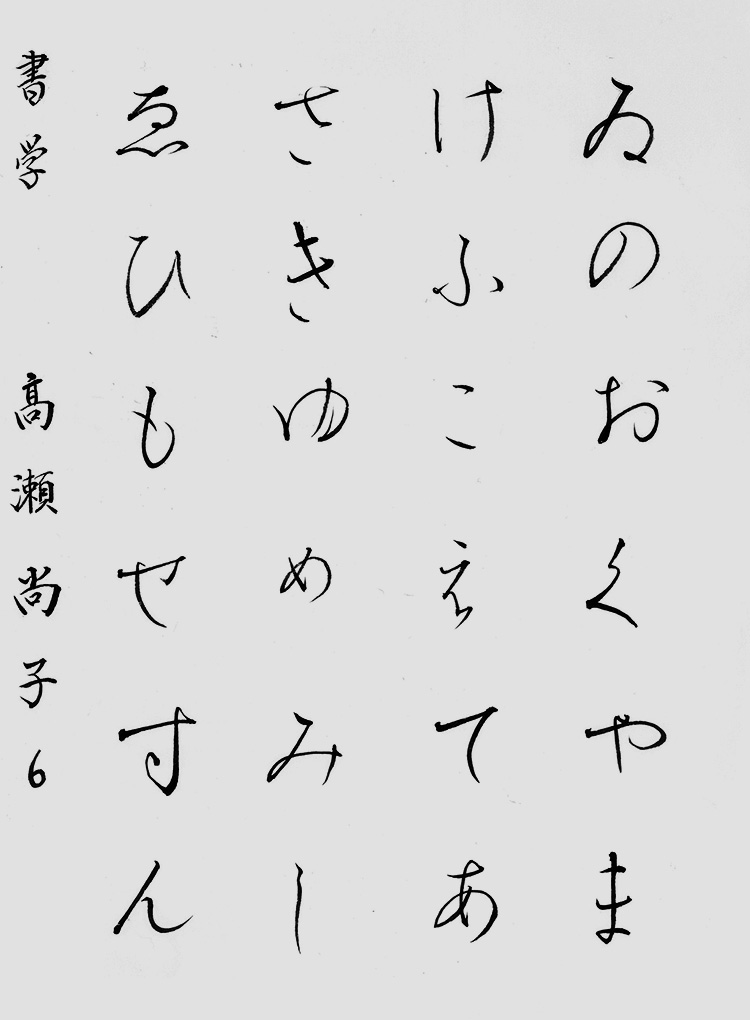 ゐのおくやま
けふこえてあ
さきゆめみし
ゑひもせすん
書学 高瀬尚子6